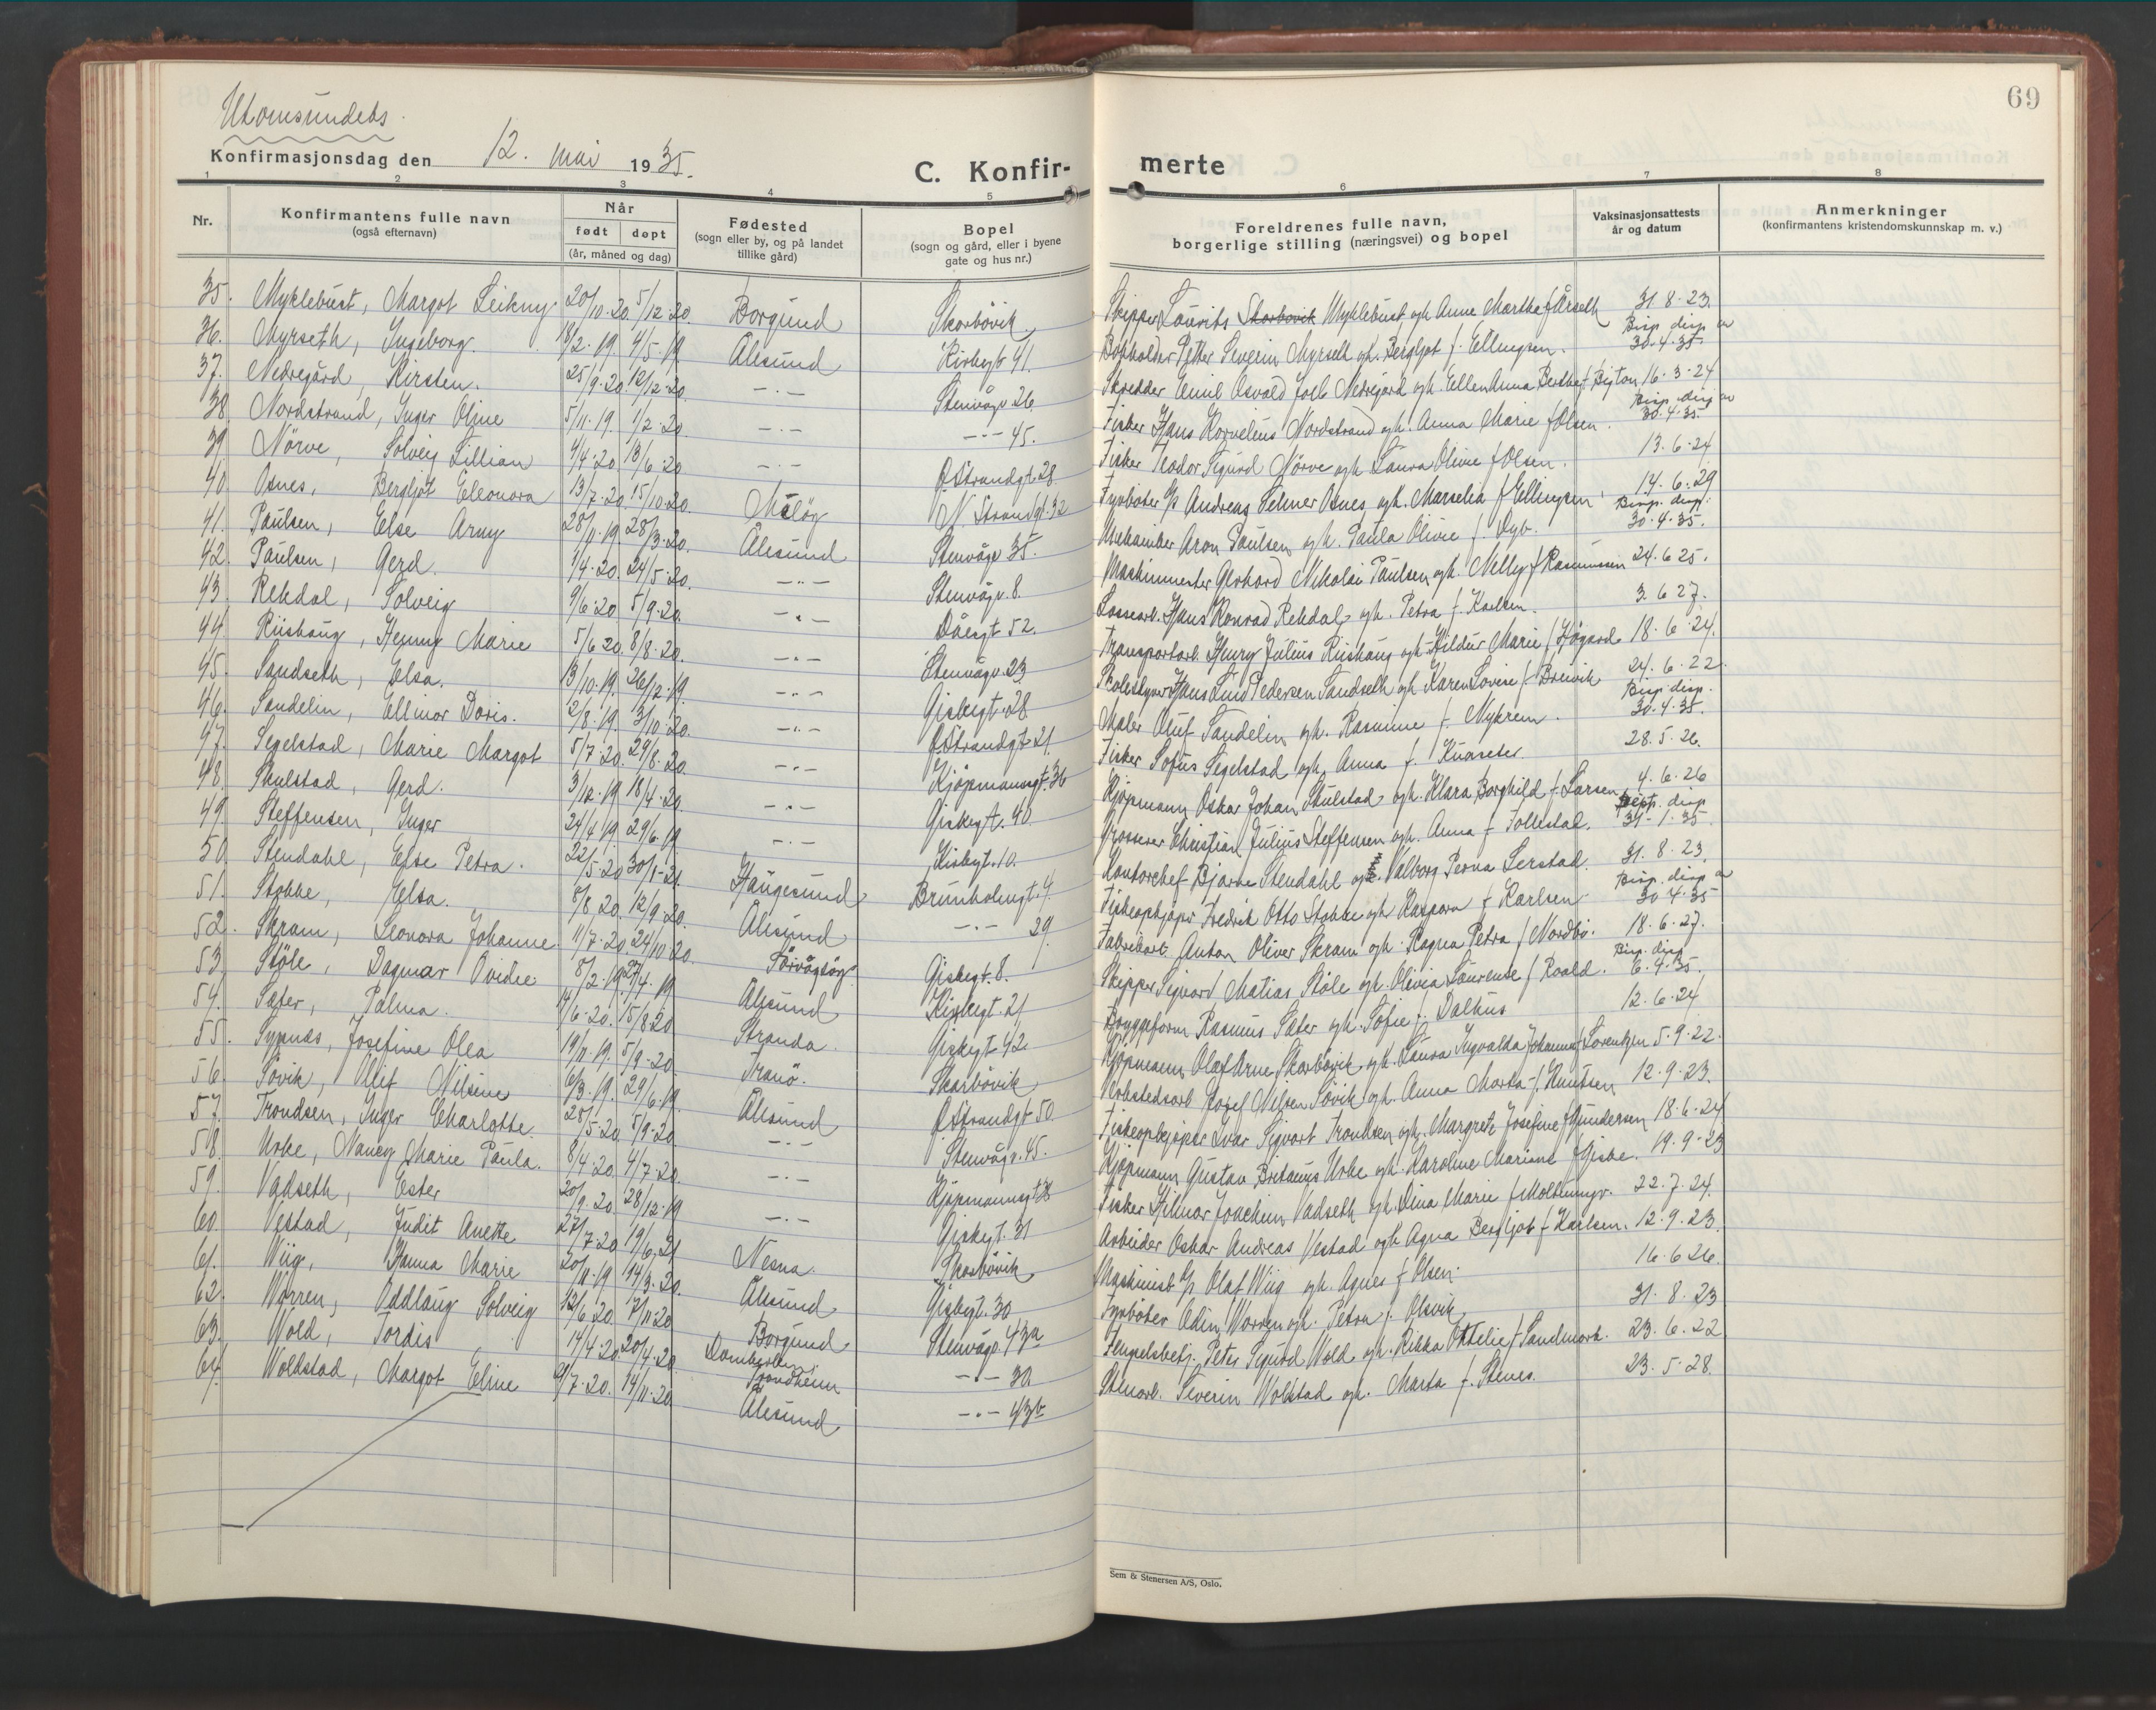 69
Utomsundets.
Konfirmasjonsdag den 12. mai 1935.
C. Konfir- merte
1 2 3 4 5 6 7 8
Nr. Konfirmantens fulle navn (også efternavn) Når født døpt (år, måned og dag) Fødested (sogn eller by, og på landet tillike gård) Bopel (sogn og gård, eller i byene gate og hus nr.) Foreldrenes fulle navn, borgerlige stilling (næringsvei) og bopel Vaksinasjonsattests år og datum Anmerkninger (konfirmantens kristendomskunnskap m. v.)
35. Myklebust, Margot Leikny 20/10.20. 5/12.20. Borgund Skarbövik Skipper Laurits Skarbövik Myklebust og h. Anne Martha f. Årseth 31.8.23.
36. Myrseth, Ingeborg. 18/2.19. 4/5.19 Ålesund Kirkegt 41. Petter Severin Myrseth og h. Bergljot f. Ellingsen. Bisp. disp. av 30.4.35.
37. Nedregård, Kirsten. 25/9.20 12/12.20. -.- Stenvågv. 26 Skredder Emil Osvald Nedregård og h. Ellen Anna Berthe f. 16.3.24
38 Nordstrand, Inger Oline 5/11.19. 1/2.20. -.- -.- 45. Fisker Hans Kornelius Nordstrand og h. Anna Marie f. Olsen. Bisp. disp. av 30.4.35.
39. Nörve, Solveig Lillian 4/4.20. 13/6.20 -.- Ö Strandgt. 28 Fisker Teodor Sigurd Nörve og h. Laura Olivie f. Olsen. 13.6.24
40. Osnes, Bergljot Eleonora 13/7.20. 15/10.20. Målöy N. Strandgt. 32 Fyrböter D/S Andreas Selmer Osnes og h. Marselia f. Ellingsen 14.6.29
41. Paulsen, Else Arny 28/11.19. 28/3.20. Ålesund Stenvågv 35. Mekaniker Aron Paulsen og h. Paula Olivie f. Dyb. Bisp. disp. 30.4.35.
42. Paulsen, Gerd. 1/4.20. 24/5.20. -.- Stenvågv. 8. Maskinmester Gerhard Nikolai Paulsen og h. Nelly f. Rasmussen 24.6.25.
43. Rekdal, Solveig 9/6.20 5/9.20. -.- Dåesgt 52. Lossearb. Hans Konrad Rekdal og h. Petra f. Karlsen. 3.6.27.
44. Riishaug, Henny Marie 5/6.20. 8/8.20. -.- Stenvågv. 23 Transportarb. Henry Julius Riishaug og h. Hildur Marie f. Högard 18.6.24.
45. Sandseth, Elsa. 13/10.19. 26/12.19. -.- Giskegt. 28 Skolestyrer Hans Lund Pedersen Sandseth og h. Karen Lovise f. Breivik 24.6.22.
46. Sandelin, Ellinor Doris. 2/8.19. 3/10.20. -.- Ö Strandgt. 21. Maler Oluf Sandelin og h. Rasmine f. Nykrem. Bisp. disp. 30.4.35.
47. Segelstad, Marie Margot 5/7.20. 29/8.20. -.- Kjøpmannsgt. 36 Fisker Sofus Segelstad og h. Anna f. 28.5.26.
48. Skulstad, Gerd. 3/12.19. 18/4.20 -.- Giskegt. 40 Kjøpmann Oskar Johan Skulstad og h. Klara Borghild f. Larsen 4.6.26
49. Steffensen, Inger 24/4.19. 29/6.19 -.- Kirkegt. 10. Grosserer Christian Julius Steffensen og h. Anna f. Follestad. Dept. disp 31-1.35.
50. Stendahl, Else Petra. 22/5.20 30/1-21. Haugesund Brunholmgt. 4. Kontorchef Bjarne Stendahl og h. Valborg Perna Serstad. 31.8.23.
51. Stokke, Elsa. 8/8.20. 12/9.20. Ålesund -.- 29. Fiskeopkjøper Fredrik Otto Stokke og h. Kaspara f. Karlsen Bisp. disp. av 30.4.35
52. Skram, Leonora Johanne 11/7.20. 24/10.20. Giskegt. 8. Fabrikarb. Anton Oliver Skram og h. Ragna Petra f. Nordbö. 18.6.27.
53. Støle, Dagmar Ovidie 8/2.19. 27/4.19 Ålesund Kirkegt. 21 Skipper Sigvard Matias Støle og h. Olivia Laurense f. Roald. Bisp. disp 6.4.35.
54. Sæter, Palma. 14/6.20. 15/8.20 Stranda. Giskegt 42 Bryggeform. Rasmus Sæter og h. Sofie f. Dalhus 12.6.24
55. Synnes, Josefine Olea 19/11.19. 5/9.20. Tranö. Skarbövik Kjøpmann Olaf Arne Skarbövik og h. Laura Ingvalda Johanne f. Lorentzen 5.9.22.
56. Sövik, Ollif Nilsine 6/3.19. 29/6.19. Ålesund Ö Strandgt 50. Verkstedsarb Josef Nilsen Sövik og h. Anna Marta f. Knutsen 12.9.23.
57. Trondsen, Inger Charlotte. 28/5.20. 5/9.20 -.- Stenvågv. 45. Fiskeopkjøper Ivar Sigvart Trondsen og h. Margrete Josefine f. Gundersen 18.6.24
58. Urke, Nancy Marie Paula. 8/4.20. 4/7.20. -.- Kjøpmannsgt. Kjøpmann Gustav Britanus Urke og h. Karoline Mariane f. Giske. 19.9.23
59. Vadseth, Ester 20/9.20 28/12.19 -.- Giskegt. 31 Fisker Hilmar Joachim Vadseth og h. Dina Marie f. Moltumyr. 22.7.24.
60. Vestad, Judit Anette 27/7.20 19/6.21 Nesna. Skarbövik Arbeider Oskar Andreas Vestad og h. Agna Bergljot f. Karlsen. 12.9.23.
61. Wiig, Hanna Marie 20/11.19 14/3.20. Ålesund Giskegt. 30 Maskinist D/S Olaf Wiig og h. Agnes f. Olsen. 16.6.26.
62. Warren, Oddlaug Solveig 12/6.20. 7/11.20 Borgund Stenvågv. 43a Fyrböter Odin Warren og h. Petra f. Olsvik 31.8.23
63. Wold, Tordis 14/4.20. 20/4.20. Trondheim -.- 30 Fengselsbetj. Peter Sigurd Wold og h. Rikka Ottelie f. Sandmark. 23.6.22
64. Woldstad, Margot Eline 21/7.20. 14/11.20 Ålesund -.- 43b Stenarb. Severin Woldstad og h. Marta f. Stenes. 23.5.28.
Sem & Stenersen A/S, Oslo.